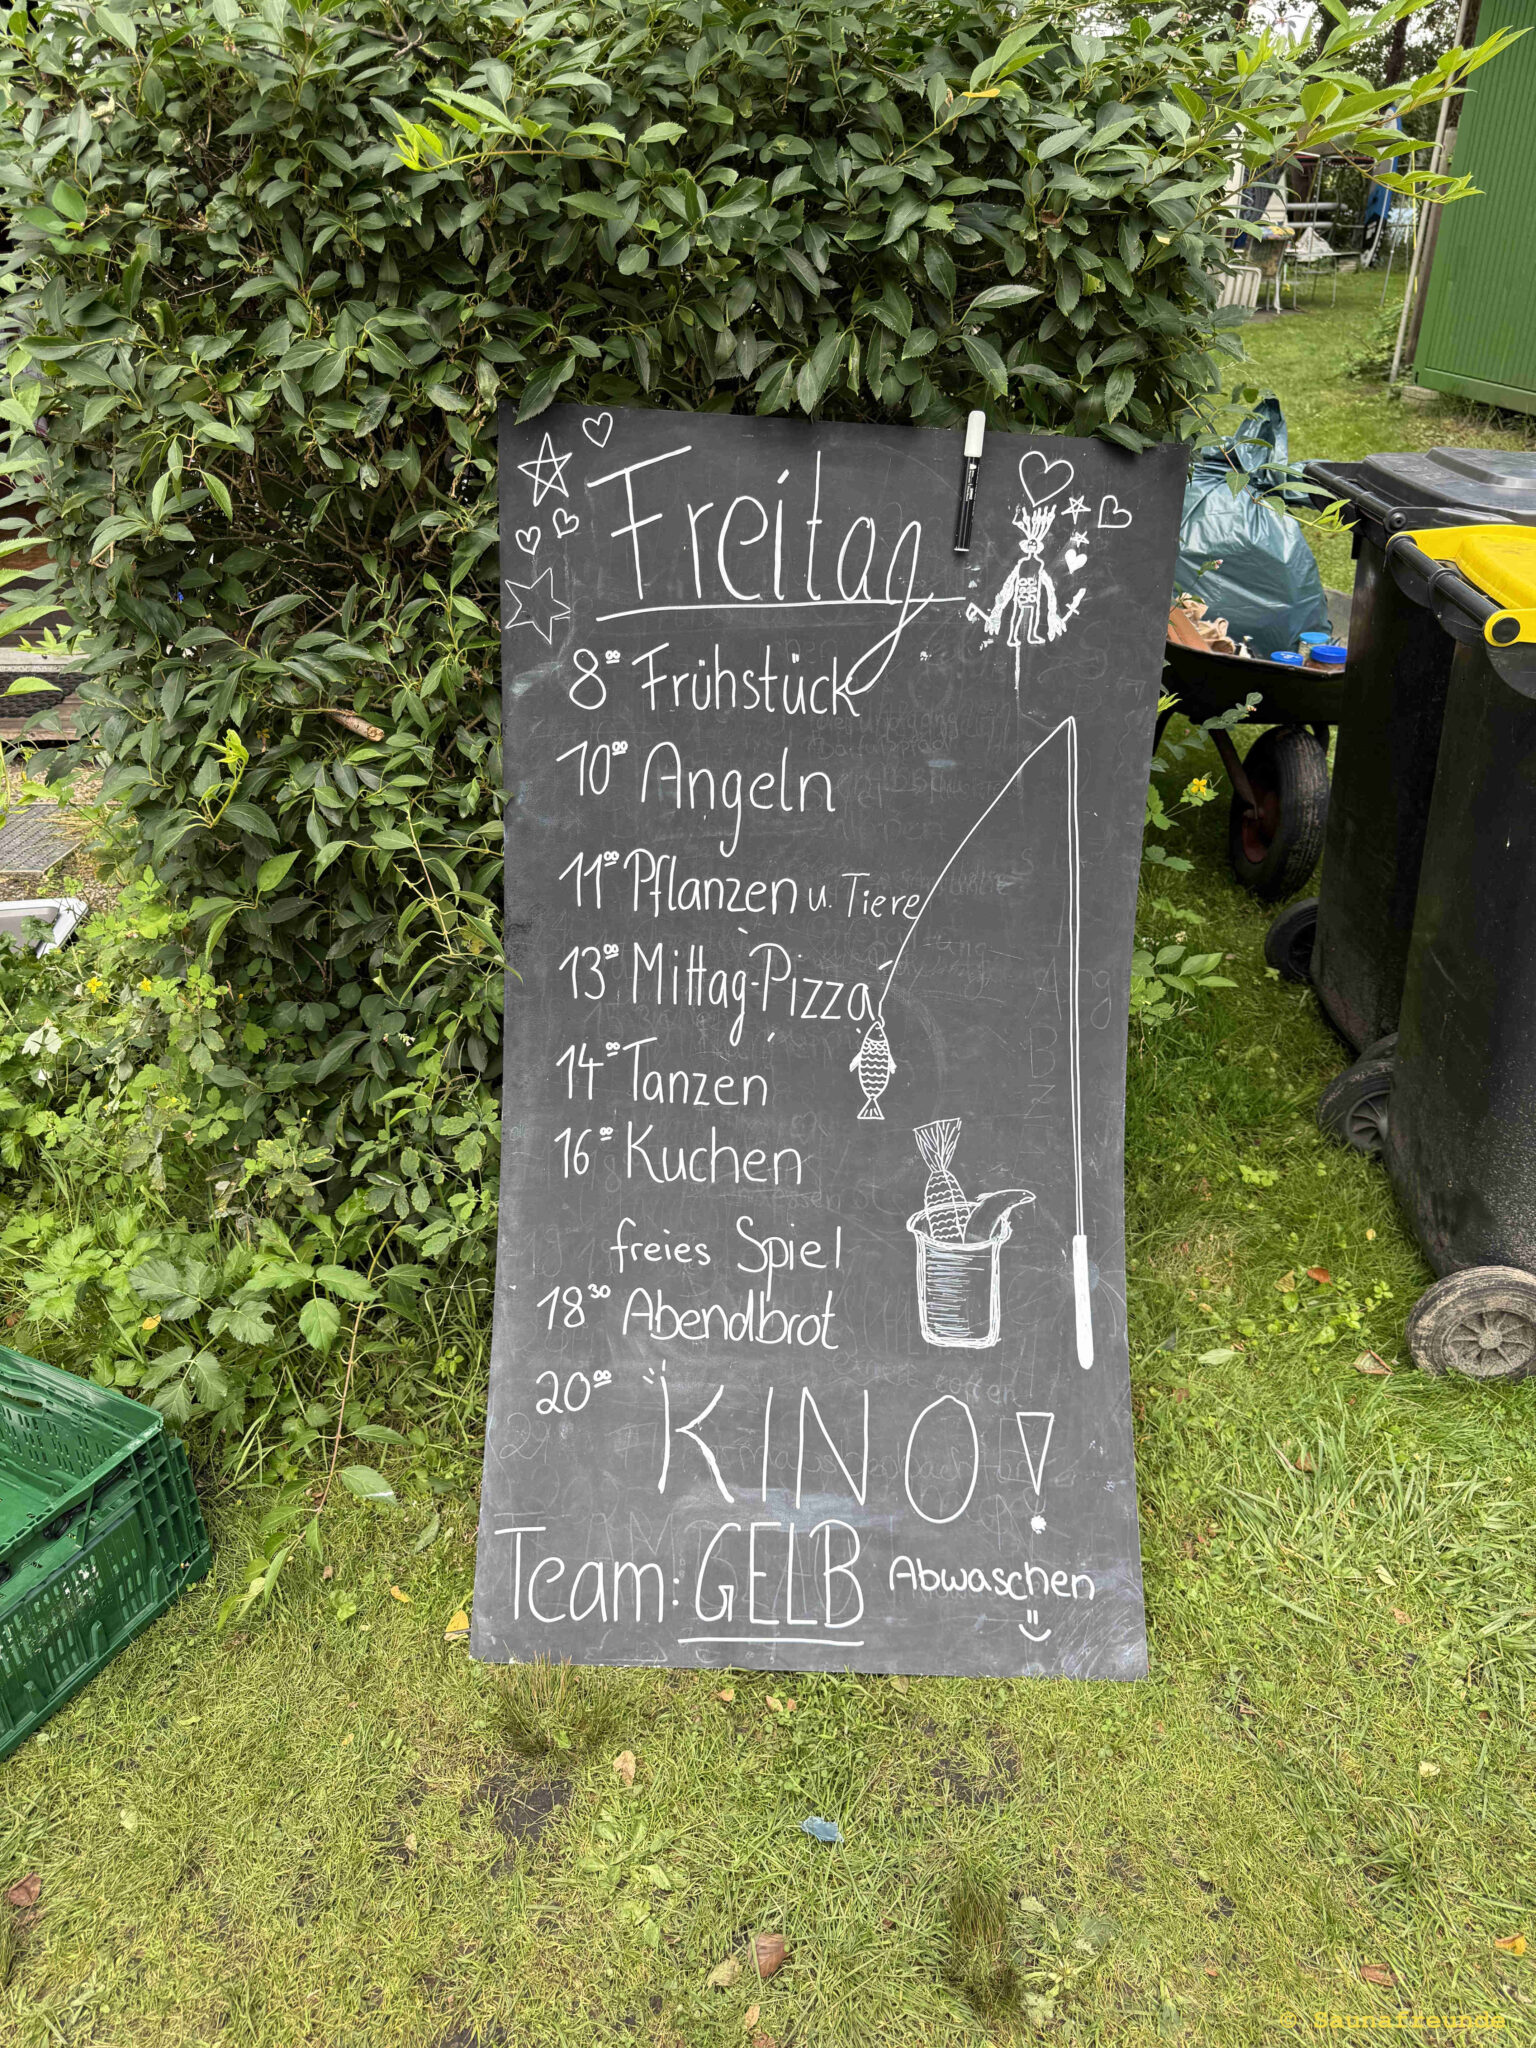 Freitag
8⁰⁰ Frühstück
10⁰⁰ Angeln
11⁰⁰ Pflanzen u. Tiere
13⁰⁰ Mittag-Pizza
14⁰⁰ Tanzen
16⁰⁰ Kuchen
freies Spiel
18³⁰ Abendbrot
20⁰⁰ KINO!
Team: GELB Abwaschen
© Saunafreunde